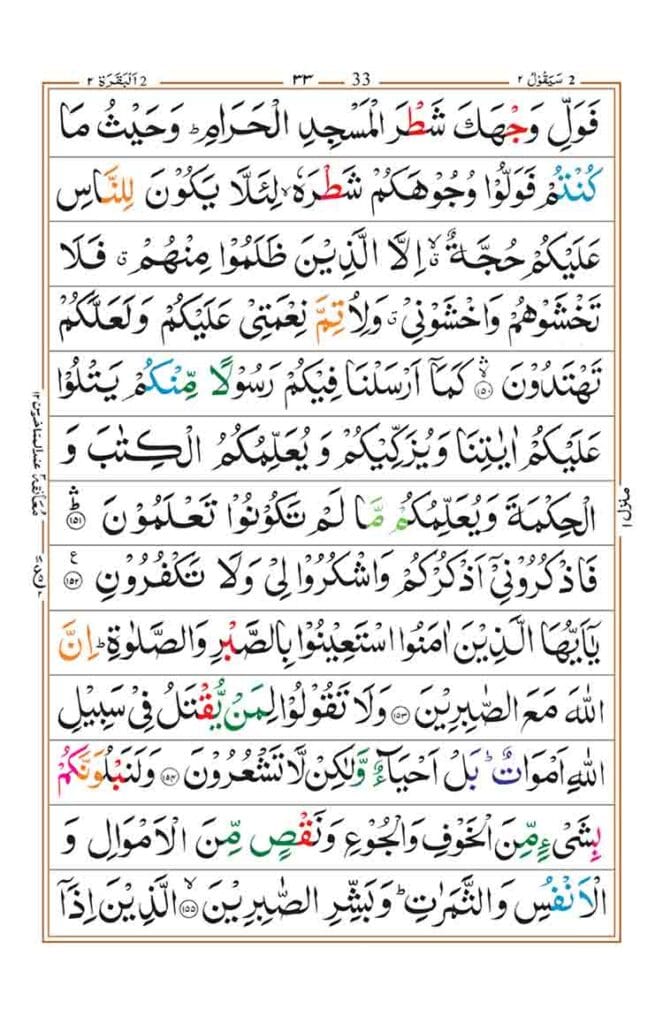 2 سَيَقُوْلُ ٢
33 ٣٣
2 اَلْبَقَرَة ٢
فَوَلِّ وَجْهَكَ شَطْرَ الْمَسْجِدِ الْحَرَامِ ؕ وَحَيْثُ مَا
كُنْتُمْ فَوَلُّوْا وُجُوْهَكُمْ شَطْرَهٗ ۙ لِئَلَّا يَكُوْنَ لِلنَّاسِ
عَلَيْكُمْ حُجَّةٌ ۙۗ اِلَّا الَّذِيْنَ ظَلَمُوْا مِنْهُمْ ۗ فَلَا
تَخْشَوْهُمْ وَاخْشَوْنِيْ ۗ وَلِاُتِمَّ نِعْمَتِيْ عَلَيْكُمْ وَلَعَلَّكُمْ
تَهْتَدُوْنَ ۛۙ ﴿١٥٠﴾ كَمَاۤ اَرْسَلْنَا فِيْكُمْ رَسُوْلًا مِّنْكُمْ يَتْلُوْا
عَلَيْكُمْ اٰيٰتِنَا وَيُزَكِّيْكُمْ وَيُعَلِّمُكُمُ الْكِتٰبَ وَ
الْحِكْمَةَ وَيُعَلِّمُكُمْ مَّا لَمْ تَكُوْنُوْا تَعْلَمُوْنَ ۛؕ ﴿١٥١﴾
فَاذْكُرُوْنِيْۤ اَذْكُرْكُمْ وَاشْكُرُوْا لِيْ وَلَا تَكْفُرُوْنِ ﴿١٥٢﴾ ع
يٰۤاَيُّهَا الَّذِيْنَ اٰمَنُوا اسْتَعِيْنُوْا بِالصَّبْرِ وَالصَّلٰوةِ ؕ اِنَّ
اللّٰهَ مَعَ الصّٰبِرِيْنَ ﴿١٥٣﴾ وَلَا تَقُوْلُوْا لِمَنْ يُّقْتَلُ فِيْ سَبِيْلِ
اللّٰهِ اَمْوَاتٌ ؕ بَلْ اَحْيَآءٌ وَّلٰكِنْ لَّا تَشْعُرُوْنَ ﴿١٥٤﴾ وَلَنَبْلُوَنَّكُمْ
بِشَيْءٍ مِّنَ الْخَوْفِ وَالْجُوْعِ وَنَقْصٍ مِّنَ الْاَمْوَالِ وَ
الْاَنْفُسِ وَالثَّمَرٰتِ ؕ وَبَشِّرِ الصّٰبِرِيْنَ ۙ ﴿١٥٥﴾ الَّذِيْنَ اِذَاۤ
منزل ١
معانقة ٢ عند المتأخرين ١٢